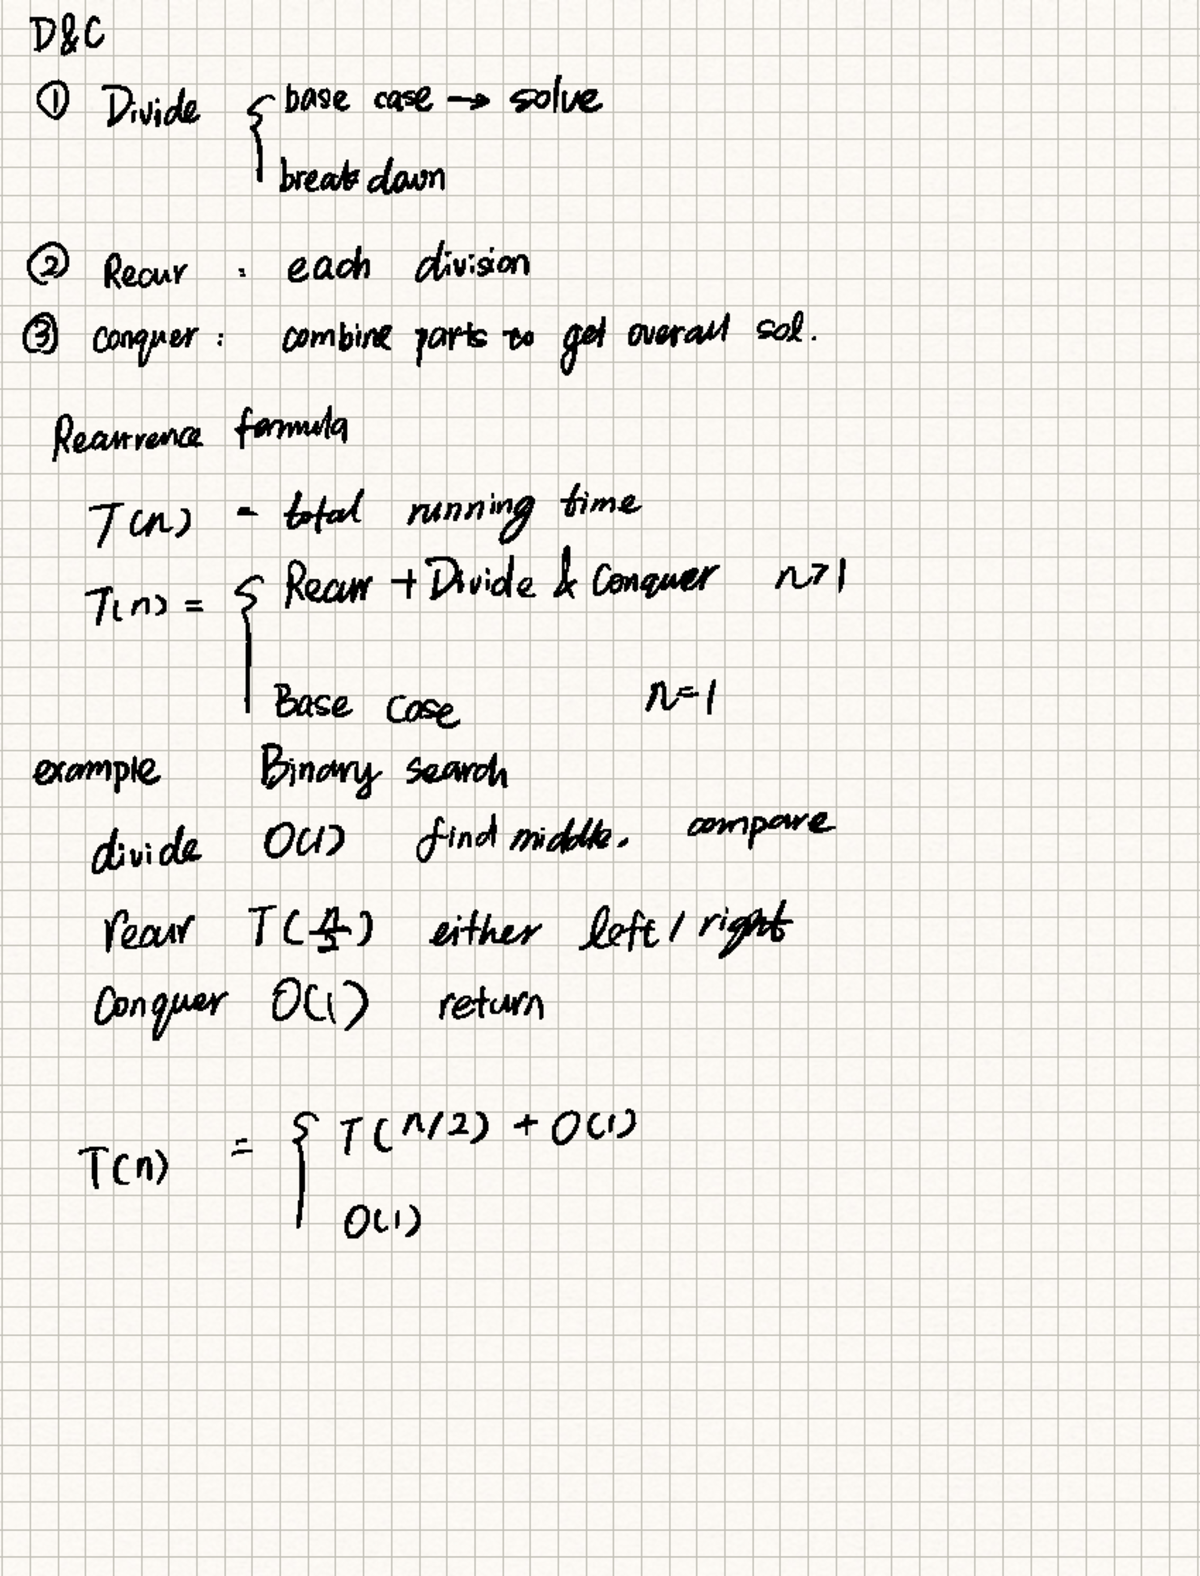 D&C
① Divide { base case → solve
break down
② Recur : each division
③ conquer : combine parts to get overall sol.
Recurrence formula
T(n) = total running time
T(n) = { Recur + Divide & Conquer n>1
Base case n=1
example Binary search
divide O(1) find middle, compare
recur T(n/2) either left / right
Conquer O(1) return
T(n) = { T(n/2) + O(1)
O(1)